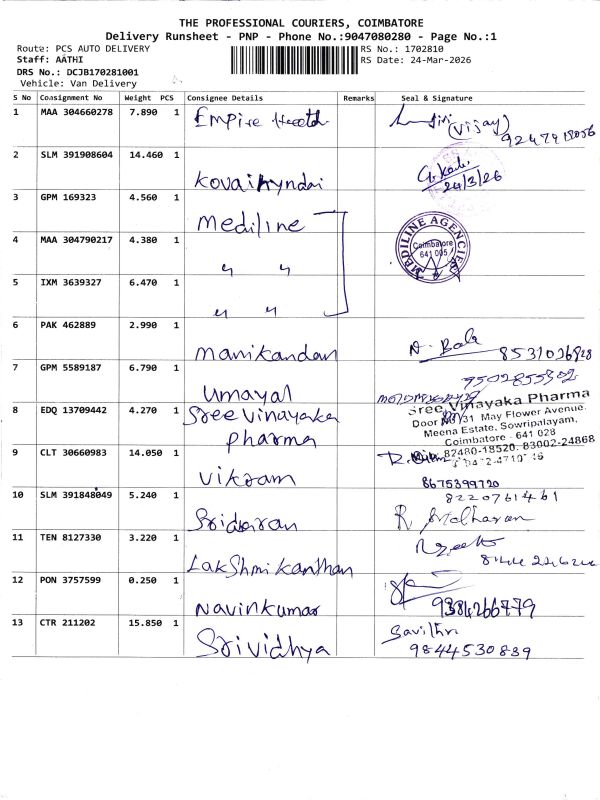 THE PROFESSIONAL COURIERS, COIMBATORE
Delivery Runsheet - PNP - Phone No.:9047080280 - Page No.:1
Route: PCS AUTO DELIVERY
Staff: AATHI
DRS No.: DCJB170281001
Vehicle: Van Delivery
RS No.: 1702810
RS Date: 24-Mar-2026
S No Consignment No Weight PCS Consignee Details Remarks Seal & Signature
1 MAA 304660278 7.890 1 Empire (Vijay)
2 SLM 391908604 14.460 1 Kovai 24/3/26
3 GPM 169323 4.560 1 Mediline
4 MAA 304790217 4.380 1 " "
MEDILINE AGENCIES Coimbatore 641 005
5 IXM 3639327 6.470 1 " "
6 PAK 462889 2.990 1 Manikandan
7 GPM 5589187 6.790 1 Umayal 9502855302
8 EDQ 13709442 4.270 1 Sree Vinayaka Pharma
Sree Vinayaka Pharma
Door No 31 May Flower Avenue,
Meena Estate, Sowripalayam,
Coimbatore - 641 028
82480-18520, 83002-24868
9 CLT 30660983 14.050 1 Vikram 8675399720
10 SLM 391848049 5.240 1 8220761461
11 TEN 8127330 3.220 1 Lakshmikanthan
12 PON 3757599 0.250 1 Navinkumar 9384266779
13 CTR 211202 15.850 1 Srividhya Savithri
9844530839